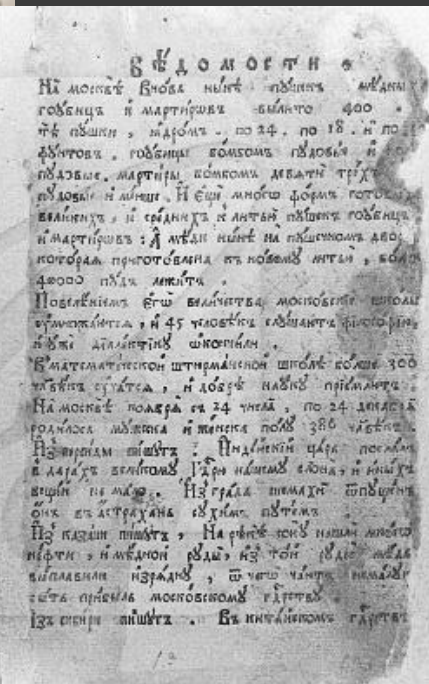 ВѢДОМОСТИ
На москвѣ вновь нынѣ пушекъ мѣдныхъ
гоубицъ и мартировъ вылито 400 .
тѣ пушки , ядромъ . по 24 . по 18 . и по
фунтовъ . гоубицы бомбомъ пудовые и
пудовые . мартиры бомбомъ девяти трехъ
пудовые и менше . И еще много формъ готовыхъ
великихъ , и среднихъ к литью пушекъ гоубицъ
и мартировъ : А мѣди нынѣ на пушечномъ дворѣ
которая приготовлена къ новому литью , болѣе
40000 пудъ лежитъ .
Повелѣнiемъ егѡ величества московскiе школы
умножаются , и 45 человѣкъ слушаютъ фiлософiю
и уже дiалектiку окончили .
Въ математiческой штюрманской школѣ болше 300
чл҃вѣкъ учатся , и добрѣ науку прiемлютъ .
На москвѣ ноября съ 24 числа , по 24 декабря
родилось мужска и женска полу 386 чл҃вѣкъ .
Изъ персиды пишутъ . Индѣйскiй царь послалъ
в дарахъ великому Гд҃рю нашему слона , и иныхъ
вещей не мало . Изъ града шемахи ѿпущенъ
онъ въ астрахань сухимъ путемъ .
Изъ казани пишутъ , На рѣкѣ соку нашли много
нефти , и мѣдной руды , изъ той руды мѣдь
выплавили изрядну , ѿ чегѡ чаютъ немалую
быть прибыль московскому гд҃рству .
Изъ сибири пишутъ . Въ китайскомъ гд҃рствѣ